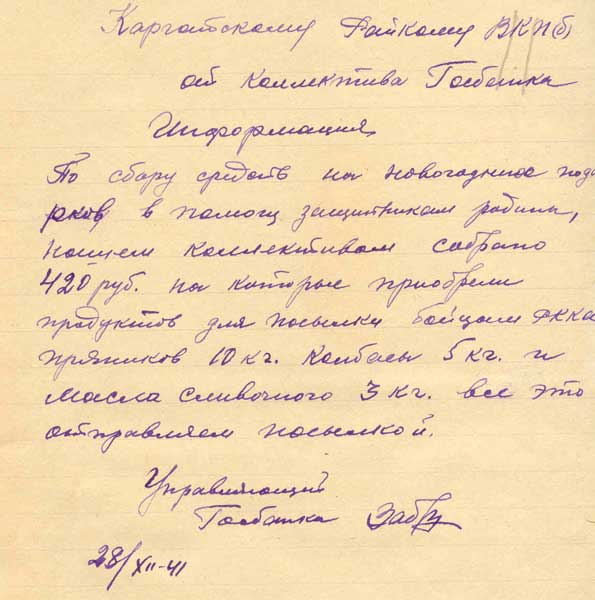 Каргатскому Райкому ВКП(б)
от коллектива Госбанка
Информация
По сбору средств на новогодние пода
рков в помощ защитникам родины,
нашем коллективом собрано
420 руб. на которые приобрели
продуктов для посылки бойцам РККА
пряников 10 кг. Колбасы 5 кг. и
Масла сливочного 3 кг. все это
отправляем посылкой.
Управляющий
Госбанка
28/XII-41